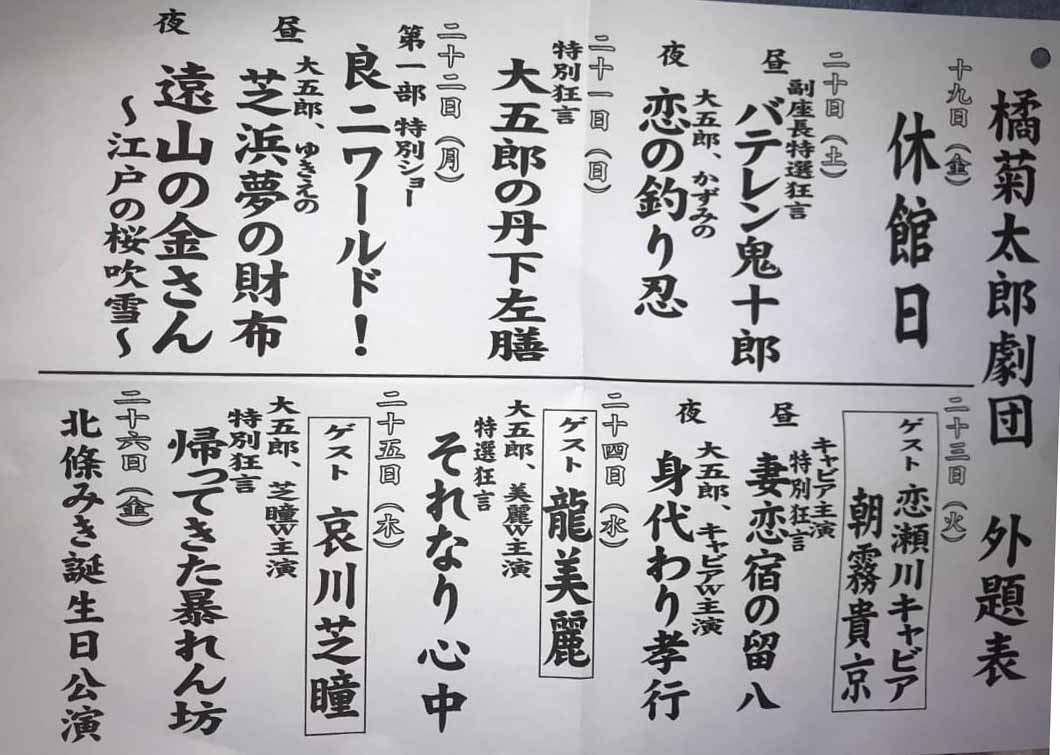 橘菊太郎劇団 外題表
十九日(金)
休館日
二十日(土)
昼
副座長特選狂言
バテレン鬼十郎
夜
大五郎、かずみの
恋の釣り忍
二十一日(日)
特別狂言
大五郎の丹下左膳
二十二日(月)
第一部 特別ショー
良ニワールド!
昼
大五郎、ゆきえの
芝浜夢の財布
夜
遠山の金さん
~江戸の桜吹雪~
二十三日(火)
ゲスト 恋瀬川キャビア
朝霧貴京
昼
キャビア主演
特別狂言
妻恋宿の留八
夜
大五郎、キャビアW主演
身代わり孝行
二十四日(水)
ゲスト 龍美麗
大五郎、美麗W主演
特選狂言
それなり心中
二十五日(木)
ゲスト 哀川芝瞳
大五郎、芝瞳W主演
特別狂言
帰ってきた暴れん坊
二十六日(金)
北條みき誕生日公演